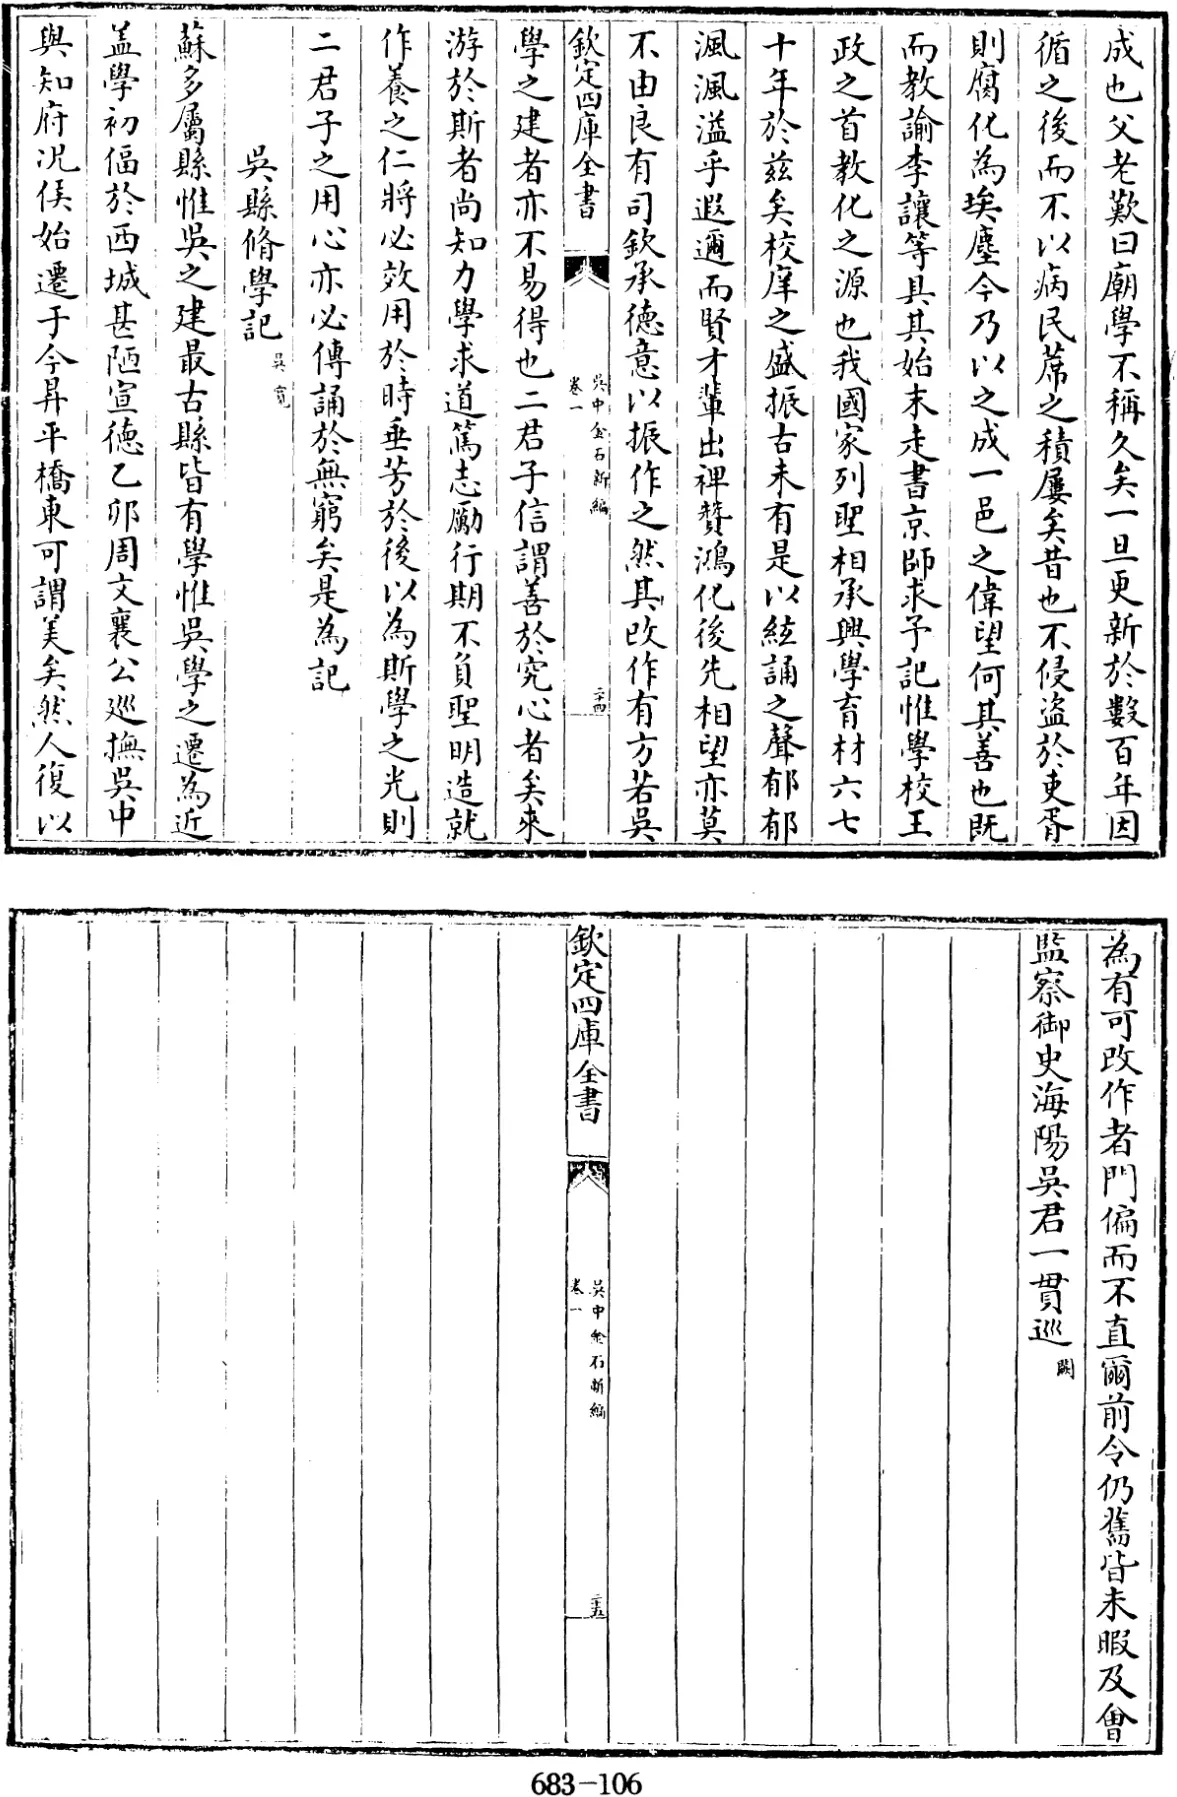 成也父老歎曰廟學不稱久矣一旦更新於數百年因
循之後而不以病民蓆之積屢矣昔也不侵盜於吏胥
則腐化為埃塵今乃以之成一邑之偉望何其善也既
而教諭李讓等具其始末走書京師求予記惟學校王
政之首教化之源也我國家列聖相承興學育材六七
十年於兹矣校庠之盛振古未有是以絃誦之聲郁郁
渢渢溢乎遐邇而賢才軰出禆贊鴻化後先相望亦莫
不由良有司欽承德意以振作之然其改作有方若吳
欽定四庫全書
吳中金石新編
卷一
二十四
學之建者亦不易得也二君子信謂善於究心者矣來
游於斯者尚知力學求道篤志勵行期不負聖明造就
作養之仁將必效用於時垂芳於後以為斯學之光則
二君子之用心亦必傳誦於無窮矣是為記
吳縣脩學記 吳寛
蘇多屬縣惟吳之建最古縣皆有學惟吳學之遷為近
盖學初偪於西城甚陋宣德乙卯周文襄公廵撫吳中
與知府况侯始遷于今昇平橋東可謂美矣然人復以
為有可改作者門偏而不直爾前令仍舊皆未暇及會
監察御史海陽吳君一貫廵 闕
欽定四庫全書
吳中金石新編
卷一
二十五
683-106